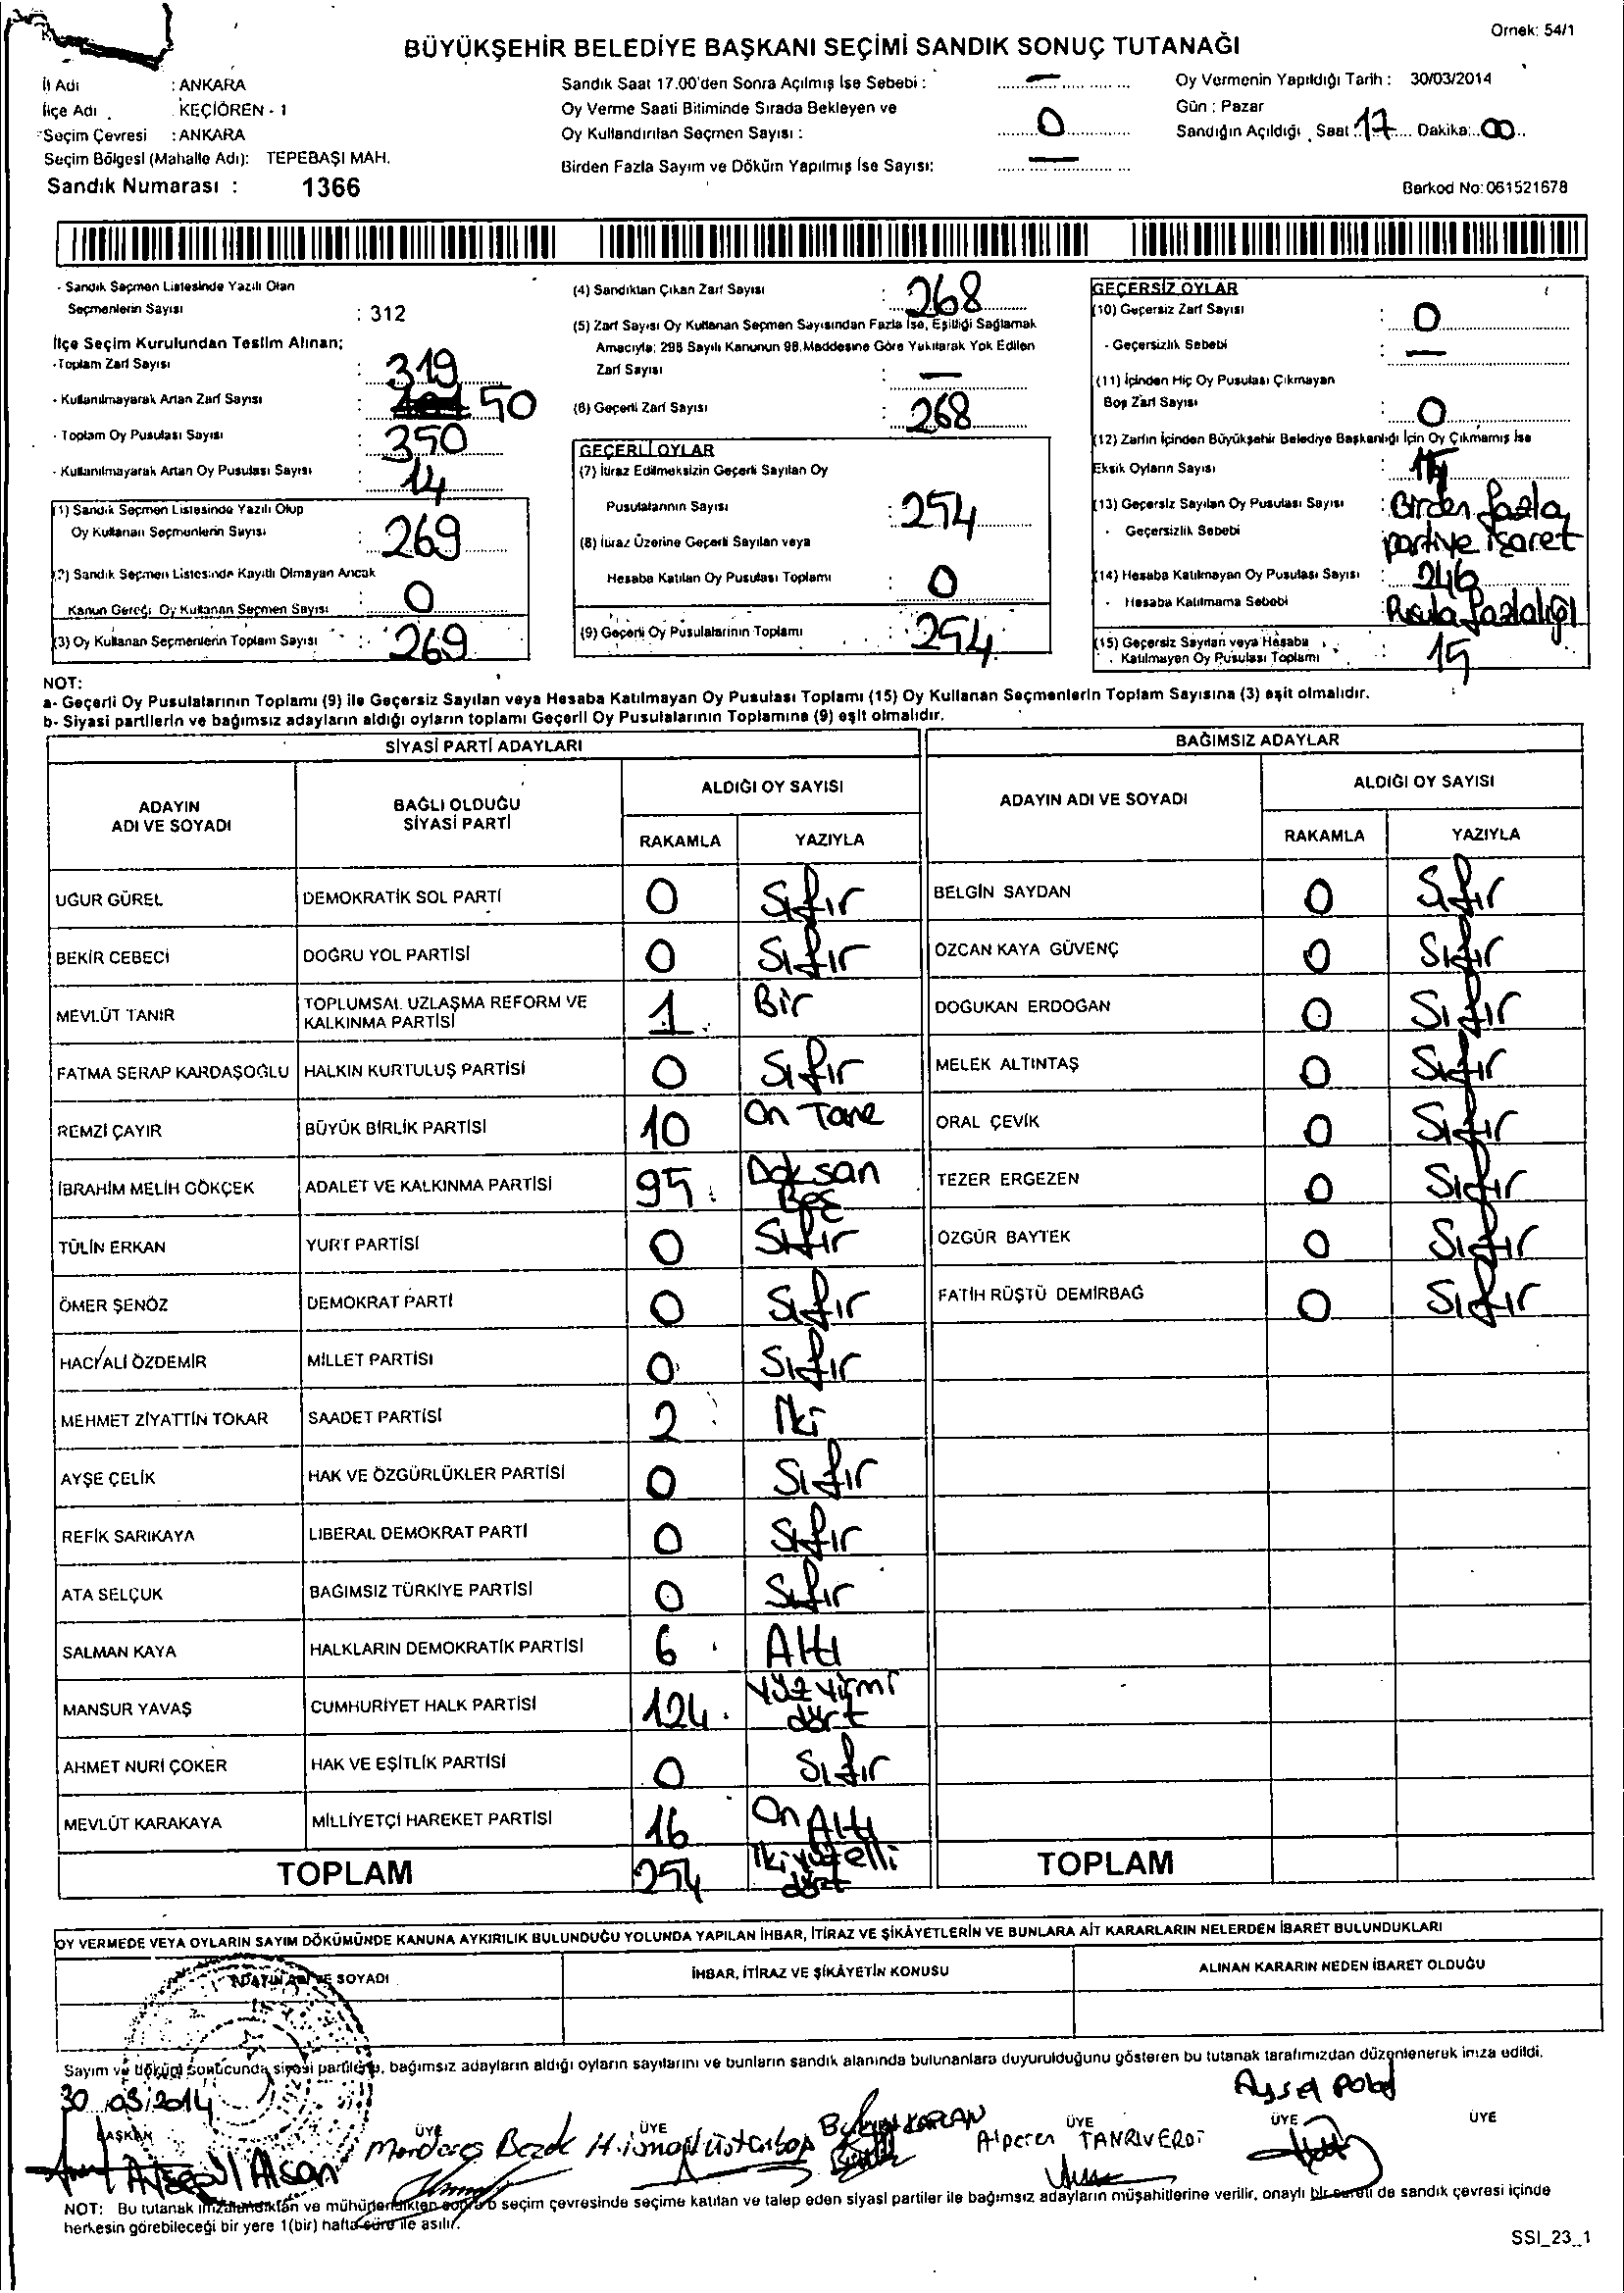 Örnek: 54/1
BÜYÜKŞEHİR BELEDİYE BAŞKANI SEÇİMİ SANDIK SONUÇ TUTANAĞI
İl Adı : ANKARA
İlçe Adı KEÇİÖREN - 1
Seçim Çevresi : ANKARA
Seçim Bölgesi (Mahalle Adı): TEPEBAŞI MAH.
Sandık Numarası : 1366
Sandık Saat 17.00'den Sonra Açılmış İse Sebebi : —
Oy Verme Saati Bitiminde Sırada Bekleyen ve
Oy Kullandırılan Seçmen Sayısı : 0
Birden Fazla Sayım ve Döküm Yapılmış İse Sayısı: —
Oy Vermenin Yapıldığı Tarih : 30/03/2014
Gün : Pazar
Sandığın Açıldığı Saat : 17 Dakika: 00
Barkod No: 061521678
- Sandık Seçmen Listesinde Yazılı Olan
Seçmenlerin Sayısı : 312
İlçe Seçim Kurulundan Teslim Alınan;
- Toplam Zarf Sayısı : 319
- Kullanılmayarak Artan Zarf Sayısı : 50
- Toplam Oy Pusulası Sayısı : 350
- Kullanılmayarak Artan Oy Pusulası Sayısı : 14
(1) Sandık Seçmen Listesinde Yazılı Olup
Oy Kullanan Seçmenlerin Sayısı : 269
(2) Sandık Seçmen Listesinde Kayıtlı Olmayan Ancak
Kanun Gereği Oy Kullanan Seçmen Sayısı : 0
(3) Oy Kullanan Seçmenlerin Toplam Sayısı : 269
(4) Sandıktan Çıkan Zarf Sayısı : 268
(5) Zarf Sayısı Oy Kullanan Seçmen Sayısından Fazla İse, Eşitliği Sağlamak
Amacıyla; 298 Sayılı Kanunun 98.Maddesine Göre Yakılarak Yok Edilen
Zarf Sayısı : —
(6) Geçerli Zarf Sayısı : 268
GEÇERLİ OYLAR
(7) İtiraz Edilmeksizin Geçerli Sayılan Oy
Pusulalarının Sayısı : 254
(8) İtiraz Üzerine Geçerli Sayılan veya
Hesaba Katılan Oy Pusulası Toplamı : 0
(9) Geçerli Oy Pusulalarının Toplamı : 254
GEÇERSİZ OYLAR
(10) Geçersiz Zarf Sayısı : 0
- Geçersizlik Sebebi : —
(11) İçinden Hiç Oy Pusulası Çıkmayan
Boş Zarf Sayısı : 0
(12) Zarfın İçinden Büyükşehir Belediye Başkanlığı İçin Oy Çıkmamış İse
Eksik Oyların Sayısı :
(13) Geçersiz Sayılan Oy Pusulası Sayısı : Birden fazla
- Geçersizlik Sebebi partiye işaret
(14) Hesaba Katılmayan Oy Pusulası Sayısı :
- Hesaba Katılmama Sebebi : Pusula fazlalığı
(15) Geçersiz Sayılan veya Hesaba
Katılmayan Oy Pusulası Toplamı : 15
NOT:
a- Geçerli Oy Pusulalarının Toplamı (9) ile Geçersiz Sayılan veya Hesaba Katılmayan Oy Pusulası Toplamı (15) Oy Kullanan Seçmenlerin Toplam Sayısına (3) eşit olmalıdır.
b- Siyasi partilerin ve bağımsız adayların aldığı oyların toplamı Geçerli Oy Pusulalarının Toplamına (9) eşit olmalıdır.
SİYASİ PARTİ ADAYLARI
ADAYIN ADI VE SOYADI BAĞLI OLDUĞU SİYASİ PARTİ ALDIĞI OY SAYISI
RAKAMLA YAZIYLA
UĞUR GÜREL DEMOKRATİK SOL PARTİ 0 Sıfır
BEKİR CEBECİ DOĞRU YOL PARTİSİ 0 Sıfır
MEVLÜT TANIR TOPLUMSAL UZLAŞMA REFORM VE KALKINMA PARTİSİ 1 Bir
FATMA SERAP KARDAŞOĞLU HALKIN KURTULUŞ PARTİSİ 0 Sıfır
REMZİ ÇAYIR BÜYÜK BİRLİK PARTİSİ 10 On Tane
İBRAHİM MELİH GÖKÇEK ADALET VE KALKINMA PARTİSİ 95 Doksan Beş
TÜLİN ERKAN YURT PARTİSİ 0 Sıfır
ÖMER ŞENÖZ DEMOKRAT PARTİ 0 Sıfır
HACI ALİ ÖZDEMİR MİLLET PARTİSİ 0 Sıfır
MEHMET ZİYATTİN TOKAR SAADET PARTİSİ 2 İki
AYŞE ÇELİK HAK VE ÖZGÜRLÜKLER PARTİSİ 0 Sıfır
REFİK SARIKAYA LİBERAL DEMOKRAT PARTİ 0 Sıfır
ATA SELÇUK BAĞIMSIZ TÜRKİYE PARTİSİ 0 Sıfır
SALMAN KAYA HALKLARIN DEMOKRATİK PARTİSİ 6 Altı
MANSUR YAVAŞ CUMHURİYET HALK PARTİSİ 124 Yüz yirmi dört
AHMET NURİ ÇOKER HAK VE EŞİTLİK PARTİSİ 0 Sıfır
MEVLÜT KARAKAYA MİLLİYETÇİ HAREKET PARTİSİ 16 On Altı
TOPLAM 254 İki yüz elli dört
BAĞIMSIZ ADAYLAR
ADAYIN ADI VE SOYADI ALDIĞI OY SAYISI
RAKAMLA YAZIYLA
BELGİN SAYDAN 0 Sıfır
ÖZCAN KAYA GÜVENÇ 0 Sıfır
DOĞUKAN ERDOĞAN 0 Sıfır
MELEK ALTINTAŞ 0 Sıfır
ORAL ÇEVİK 0 Sıfır
TEZER ERGEZEN 0 Sıfır
ÖZGÜR BAYTEK 0 Sıfır
FATİH RÜŞTÜ DEMİRBAĞ 0 Sıfır
TOPLAM
OY VERMEDE VEYA OYLARIN SAYIM DÖKÜMÜNDE KANUNA AYKIRILIK BULUNDUĞU YOLUNDA YAPILAN İHBAR, İTİRAZ VE ŞİKÂYETLERİN VE BUNLARA AİT KARARLARIN NELERDEN İBARET BULUNDUKLARI
ADAYIN ADI VE SOYADI İHBAR, İTİRAZ VE ŞİKÂYETİN KONUSU ALINAN KARARIN NEDEN İBARET OLDUĞU
Sayım ve dökümü sonucunda siyasi partilerin, bağımsız adayların aldığı oyların sayılarını ve bunların sandık alanında bulunanlara duyurulduğunu gösteren bu tutanak tarafımızdan düzenlenerek imza edildi.
30 03/2014
Aysel Polat
BAŞKAN ÜYE ÜYE ÜYE ÜYE ÜYE
Menderes Bezek KAPLAN Alperen TANRIVERDİ
NOT: Bu tutanak imzalandıktan ve mühürlendikten sonra o seçim çevresinde seçime katılan ve talep eden siyasi partiler ile bağımsız adayların müşahitlerine verilir, onaylı bir sureti de sandık çevresi içinde
herkesin görebileceği bir yere 1(bir) hafta süre ile asılır.
SSI_23_1